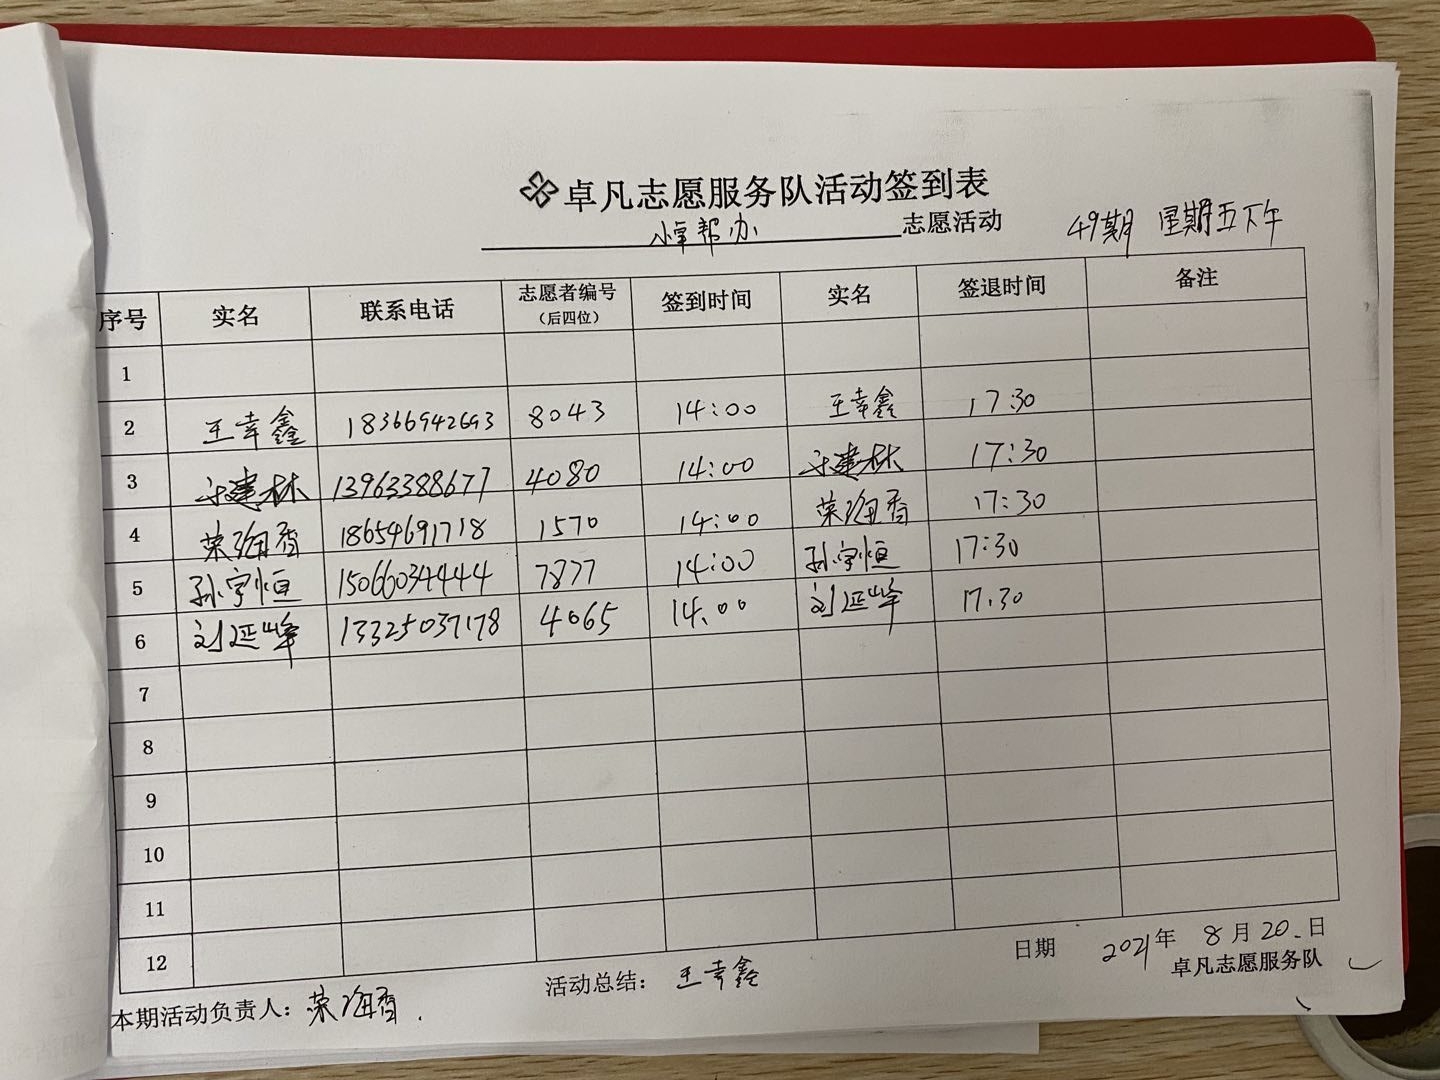 卓凡志愿服务队活动签到表
小卓帮办 志愿活动 49期 星期五下午
序号 实名 联系电话 志愿者编号（后四位） 签到时间 实名 签退时间 备注
1
2 王幸鑫 18366942693 8043 14:00 王幸鑫 17:30
3 建林 13963388677 4080 14:00 建林 17:30
4 荣海香 18654691718 1570 14:00 荣海香 17:30
5 孙宇恒 15066034444 7877 14:00 孙宇恒 17:30
6 刘延峰 13325037178 4065 14.00 刘延峰 17.30
7
8
9
10
11
12
日期 2021年 8月20.日
本期活动负责人：荣海香. 活动总结：王幸鑫 卓凡志愿服务队